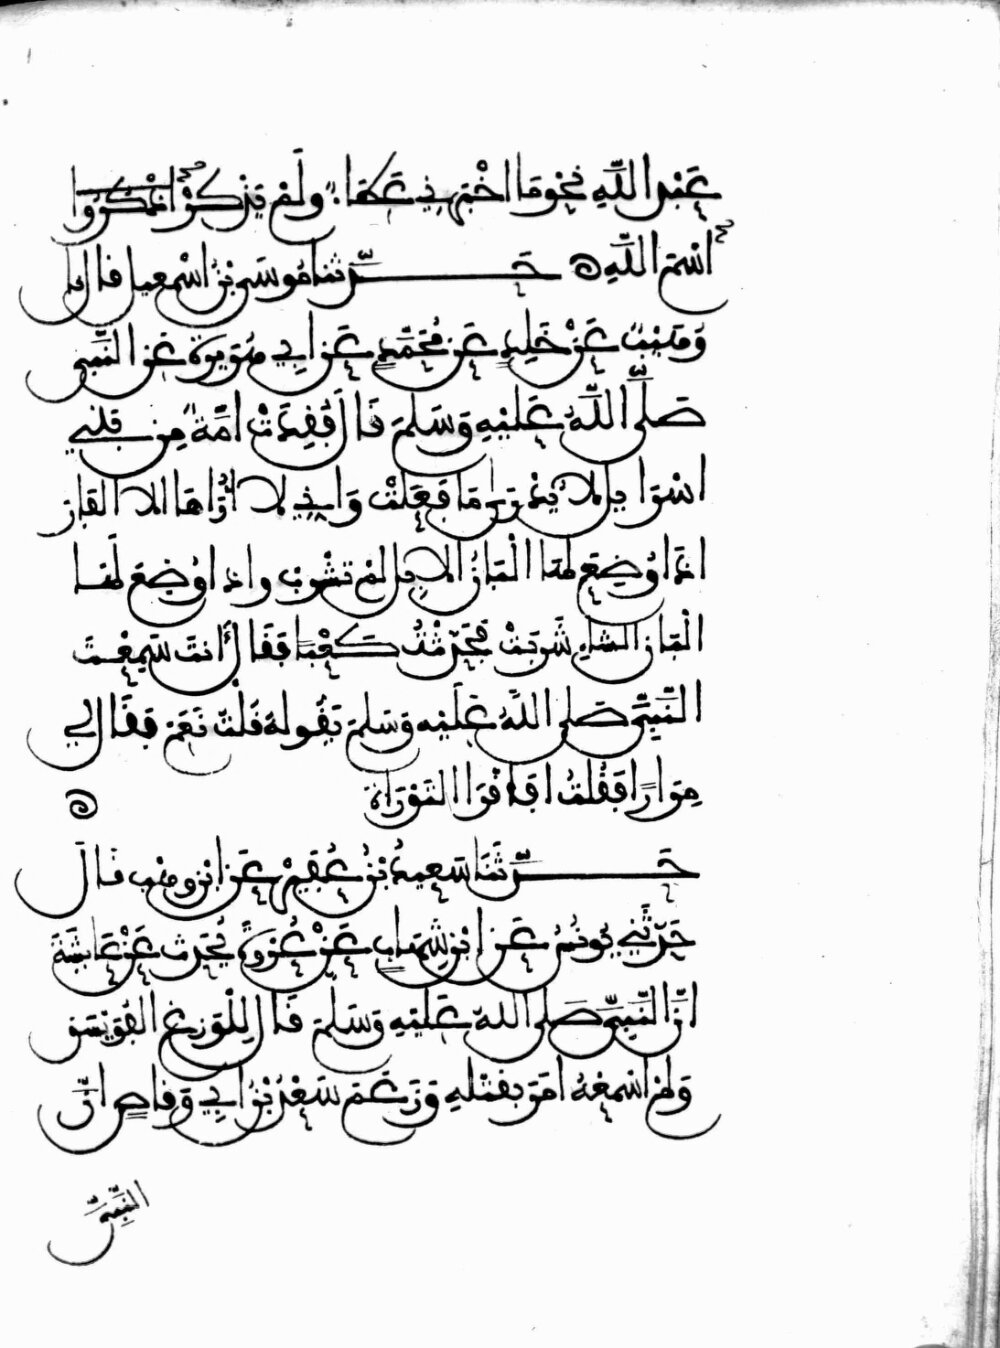 عَبْدِ اللَّهِ نَحْوَ مَا أَخْبَرَنِي عَطَاءٌ وَلَمْ يَذْكُرْ اذْكُرُوا
اسْمَ اللَّهِ ه حَدَّثَنَا مُوسَى بْنُ اسْمَعِيلَ قَالَ نا
وُهَيْبٌ عَنْ خَلِدٍ عَنْ مُحَمَّدٍ عَنْ أَبِي هُرَيْرَةَ عَنِ النَّبِيِّ
صَلَّى اللَّهُ عَلَيْهِ وَسَلَّمَ قَالَ فُقِدَتْ امَّةٌ مِنْ بَنِي
اسْرَايِلَ لَا يُدْرَى مَا فَعَلَتْ وَانِّي لَا أُرَاهَا الَّا الْفَارَ
اذَا وُضِعَ لَهَا الْبَانُ الْابِلِ لَمْ تَشْرَبْ وَاذَا وُضِعَ لَهَا
الْبَانُ الشَّاءِ شَرِبَتْ فَحَدَّثْتُ كَعْبًا فَقَالَ أَنْتَ سَمِعْتَ
النَّبِيَّ صَلَّى اللَّهُ عَلَيْهِ وَسَلَّمَ يَقُولُهُ قُلْتُ نَعَمْ فَقَالَ لِي
مِرَارًا فَقُلْتُ افَاقْرَأُ التَّوْرَاةَ ه
حَدَّثَنَا سَعِيدُ بْنُ عُفَيْرٍ عَنِ ابْنِ وَهْبٍ قَالَ
حَدَّثَنِي يُونُسُ عَنِ ابْنِ شِهَابٍ عَنْ عُرْوَةَ يُحَدِّثُ عَنْ عَائِشَةَ
انَّ النَّبِيَّ صَلَّى اللَّهُ عَلَيْهِ وَسَلَّمَ قَالَ لِلْوَزَغِ الْفُوَيْسِقُ
وَلَمْ اسْمَعْهُ امَرَ بِقَتْلِهِ وَزَعَمَ سَعْدُ بْنُ ابِي وَقَّاصٍ انَّ
النَّبِيَّ